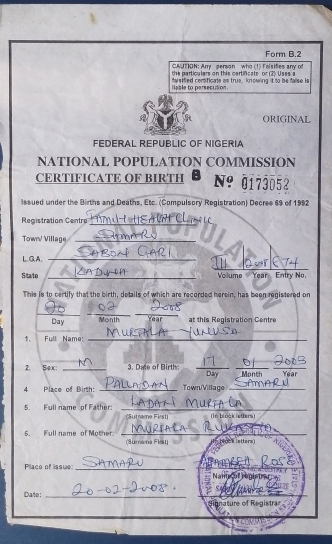 Form B.2
CAUTION: Any person who (1) Falsifies any of
the particulars on this certificate or (2) Uses a
falsified certificate as true, knowing it to be false is
liable to persecution.
ORIGINAL
FEDERAL REPUBLIC OF NIGERIA
NATIONAL POPULATION COMMISSION
CERTIFICATE OF BIRTH B Nº 0173052
Issued under the Births and Deaths, Etc. (Compulsory Registration) Decree 69 of 1992
Registration Centre FAMILY HEALTH CLINIC
Town/Village SAMARU
L.G.A. SABON GARI III 2008 674
State KADUNA Volume Year Entry No.
This is to certify that the birth, details of which are recorded herein, has been registered on
20 02 2008 at this Registration Centre
Day Month Year
1. Full Name: MURTALA YUNUSA
2. Sex: M 3. Date of Birth: 17 01 2003
Day Month Year
4 Place of Birth: PALLADAN Town/Village SAMARU
5. Full name of Father: LADAN MURTALA
(Surname First) (In block letters)
6. Full name of Mother: MURTALA
(Surname First) (In block letters)
Place of issue: SAMARU ROSE
Name of registrar
Date: 20-02-2008.
Signature of Registrar